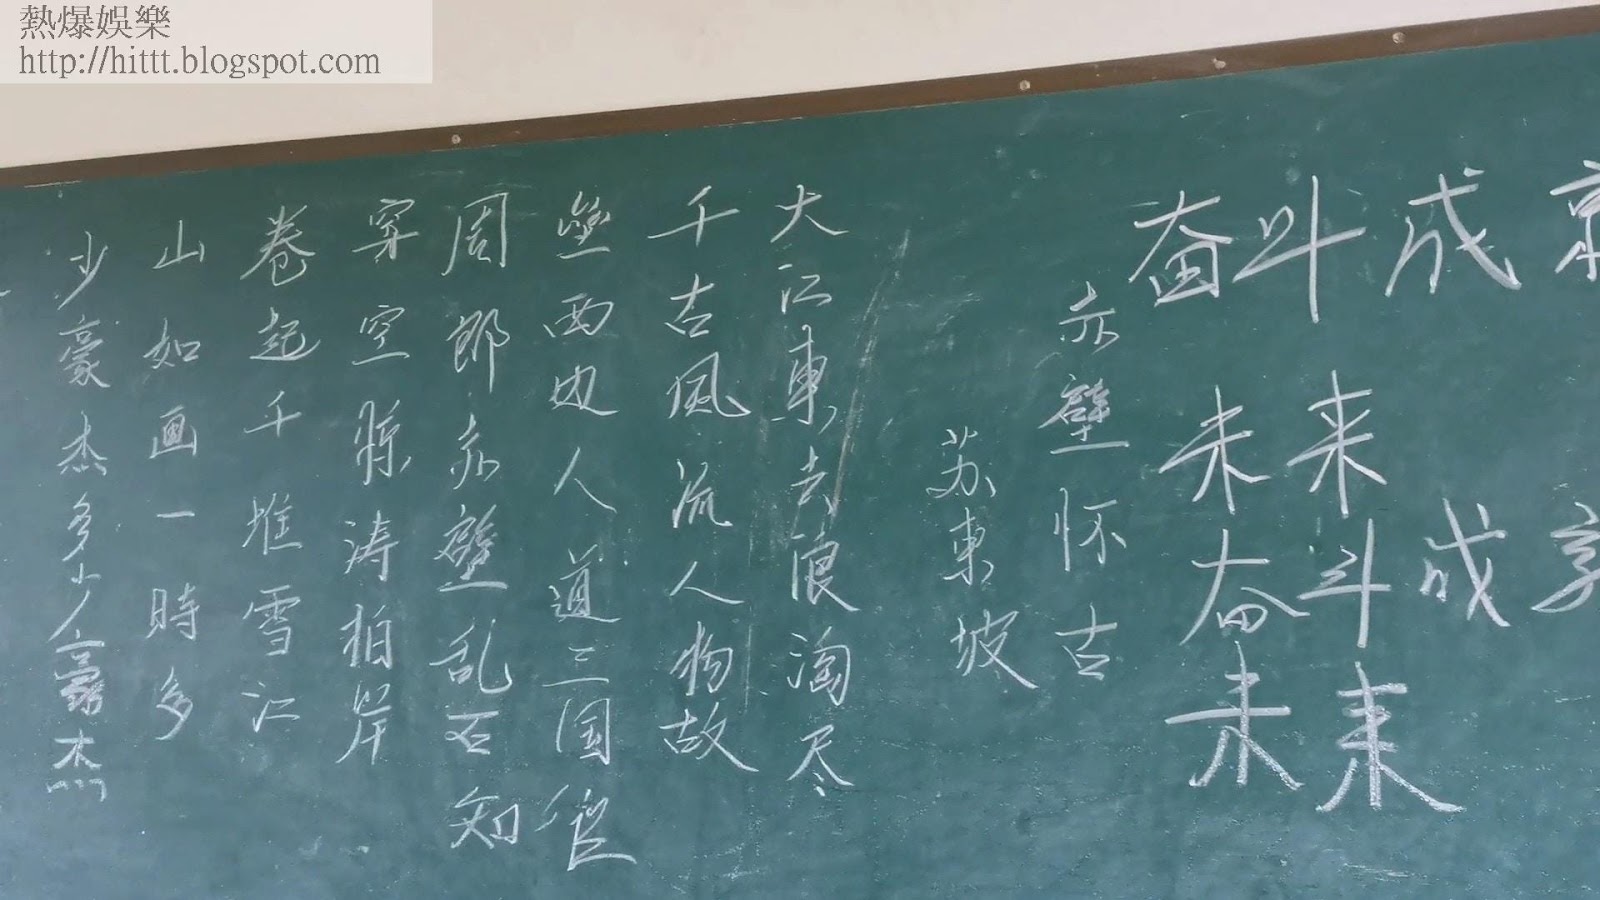 熱爆娛樂
http://hittt.blogspot.com
奋斗成
未来
奋斗成
未来
赤壁怀古
苏東坡
大江東去浪淘尽
千古風流人物故
壘西边人道三国
周郎赤壁乱石知
穿空涛拍岸
卷起千堆雪江
山如画一時多
少豪杰多少豪杰